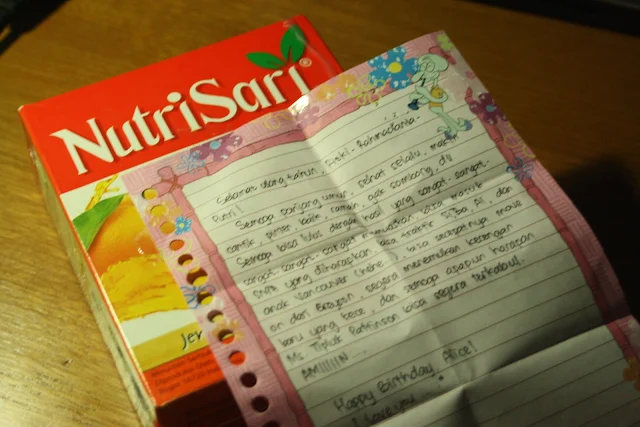 NutriSari®
Jer
Selamat ulang tahun, Fitri Rahmadania
Putri!
Semoga panjang umur, sehat selalu, makin
cantik, pinter, baik, ramah, gak sombong, dll
Semoga bisa lulus dengan hasil yang sangat-sangat-
sangat-sangat-sangat memuaskan bisa masuk
SNSD yang diharapkan, bisa traktir SIBA, PI, dan
anak Vancouver (hehe), bisa secepatnya move
on dari segera menemukan kecengan
baru yang kece, dan semoga apapun harapan
Ms. Tipluk Pattinson bisa segera terkabul.
AMIIIIIN
Happy Birthday, Alice!
I love you